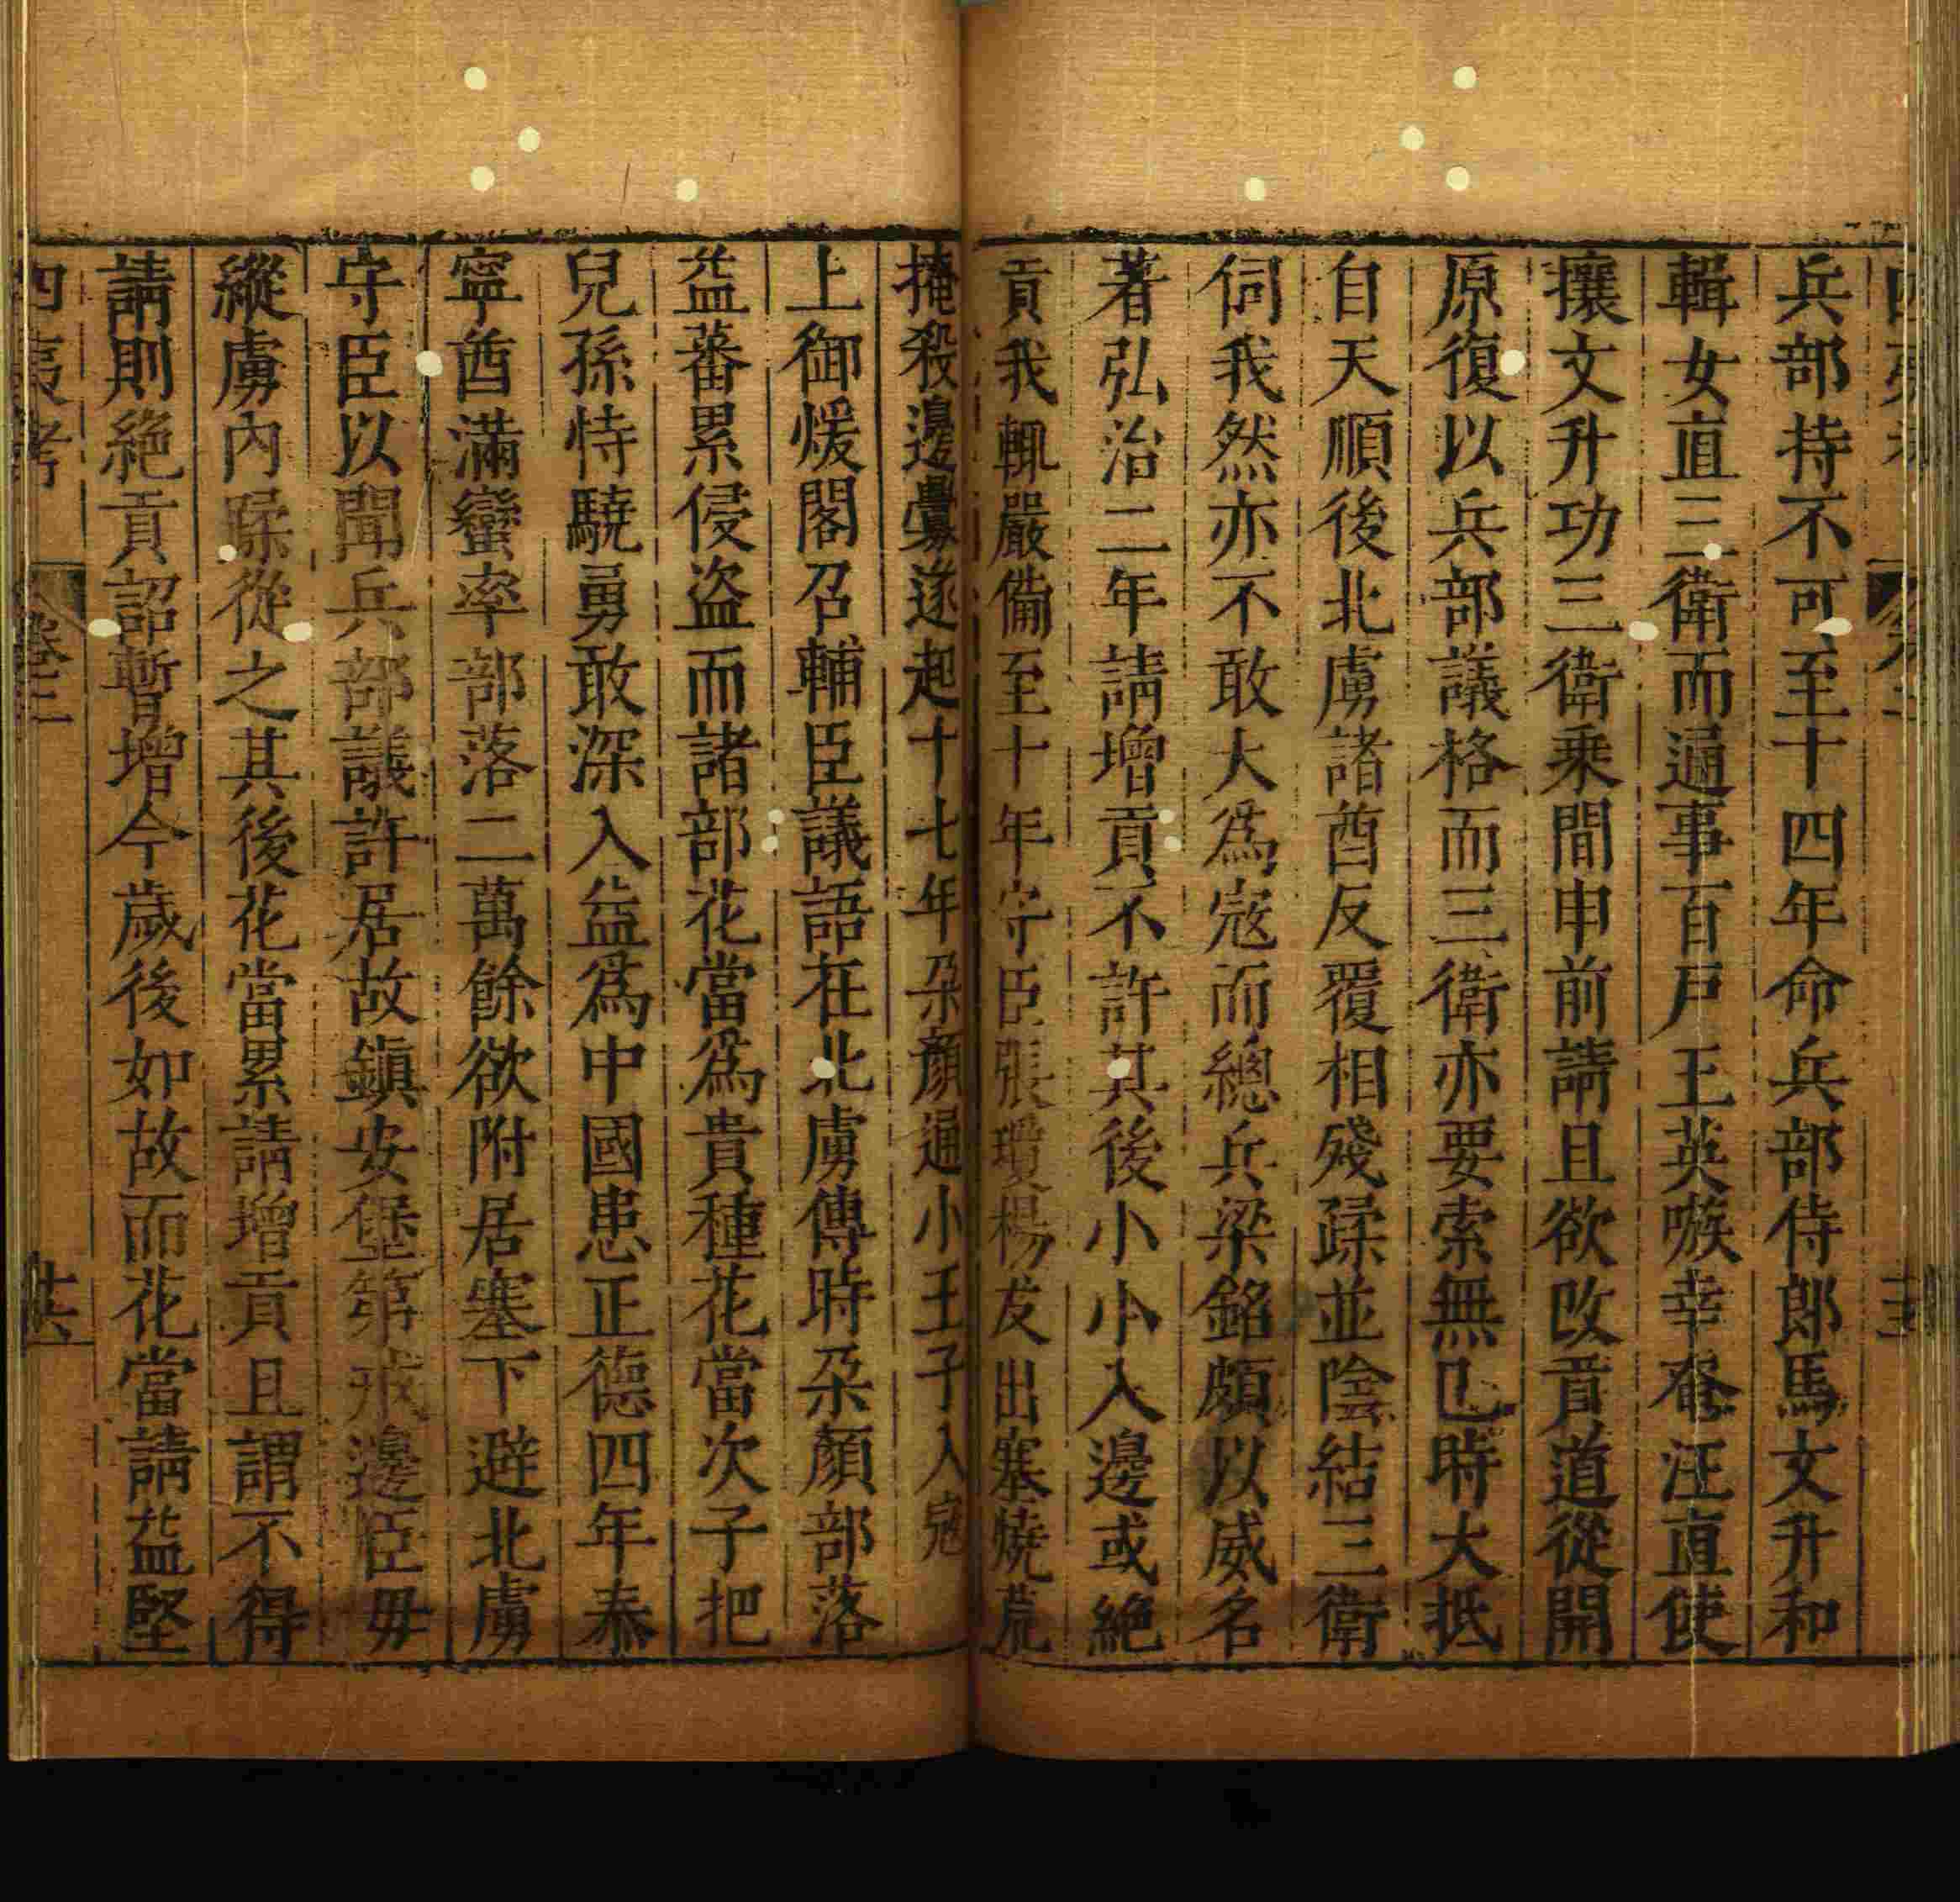 兵部持不可至十四年命兵部侍郎馬文升和
輯女直三衛而通事百戶王英嗾幸奄汪直使
攘文升功三衛乘間申前請且欲改貢道從開
原復以兵部議格而三衛亦要索無已時大抵
自天順後北虜諸酋反覆相殘蹂並陰結三衛
伺我然亦不敢大爲寇而總兵梁銘頗以威名
著弘治二年請增貢不許其後小小入邊或絕
貢我輒嚴備至十年守臣張瓊楊友出塞燒荒
掩殺邊釁遂起十七年朶顏通小王子入寇
上御煖閣召輔臣議語在北虜傳時朶顏部落
益蕃累侵盜而諸部花當爲貴種花當次子把
兒孫恃驍勇敢深入益爲中國患正德四年泰
寧酋滿蠻率部落二萬餘欲附居塞下避北虜
守臣以聞兵部議許居故鎮安堡第戒邊臣毋
縱虜內蹂從之其後花當累請增貢且謂不得
請則絕貢詔暫增今歲後如故而花當請益堅
四夷考
卷三
廿六